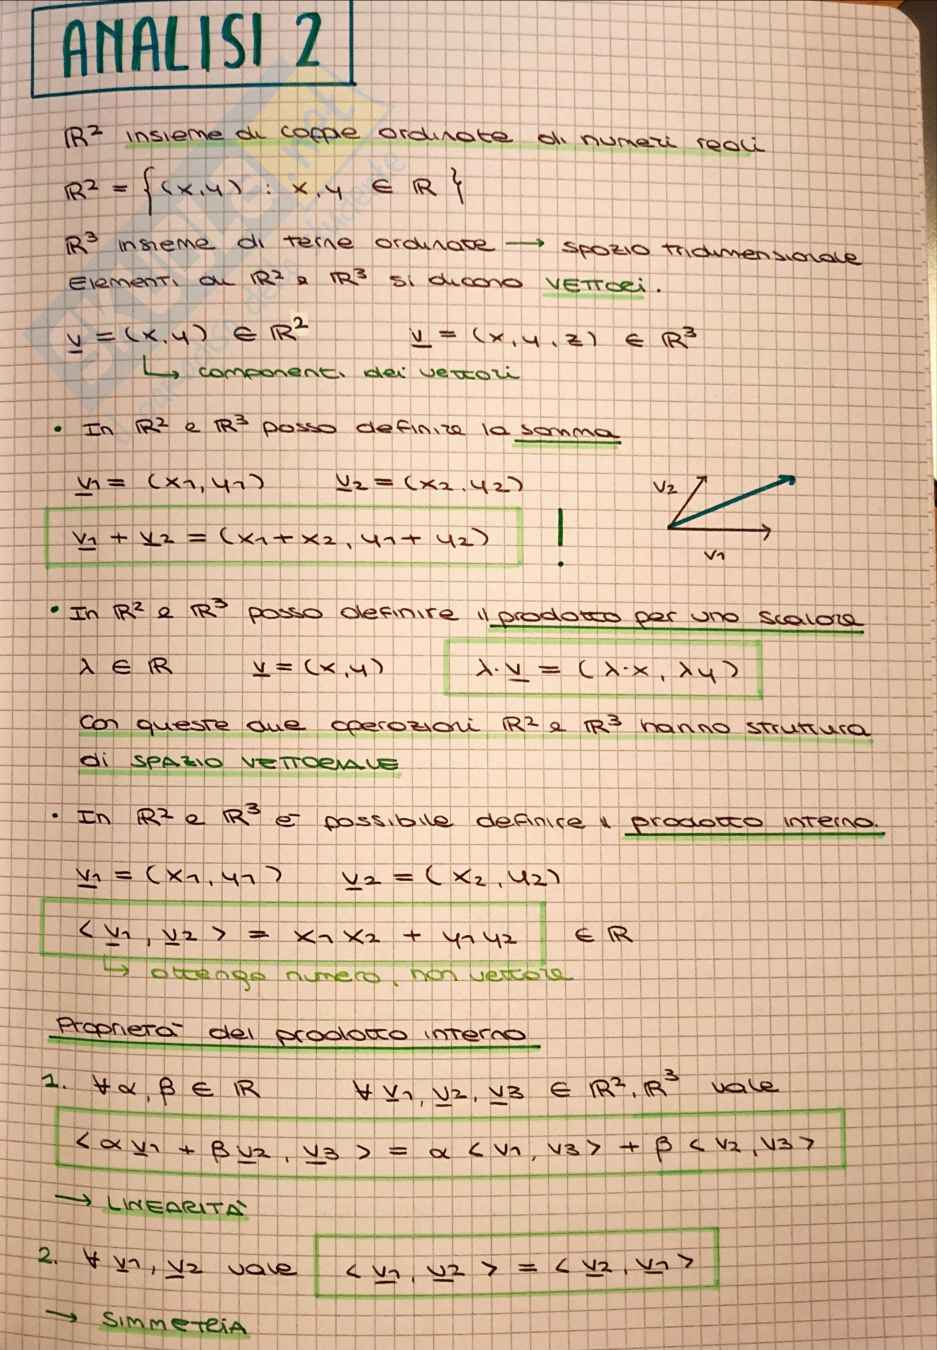 ANALISI 2
R² insieme di coppie ordinate di numeri reali
R² = {(x,y) : x,y ∈ R}
R³ insieme di terne ordinate → spazio tridimensionale
Elementi di R² e R³ si dicono VETTORI.
v = (x,y) ∈ R² v = (x,y,z) ∈ R³
↳ componenti dei vettori
• In R² e R³ posso definire la somma
v1 = (x1,y1) v2 = (x2,y2)
v2
v1 + v2 = (x1+x2, y1+y2) !
v1
• In R² e R³ posso definire il prodotto per uno scalare
λ ∈ R v = (x,y) λ·v = (λ·x, λy)
Con queste due operazioni R² e R³ hanno struttura
di SPAZIO VETTORIALE
• In R² e R³ è possibile definire il prodotto interno.
v1 = (x1,y1) v2 = (x2,y2)
<v1, v2> = x1x2 + y1y2 ∈ R
↳ ottengo numero, non vettore
Proprietà del prodotto interno
1. ∀ α,β ∈ R ∀ v1, v2, v3 ∈ R², R³ vale
<αv1 + βv2, v3> = α<v1, v3> + β<v2, v3>
→ LINEARITÀ
2. ∀ v1, v2 vale <v1, v2> = <v2, v1>
→ SIMMETRIA